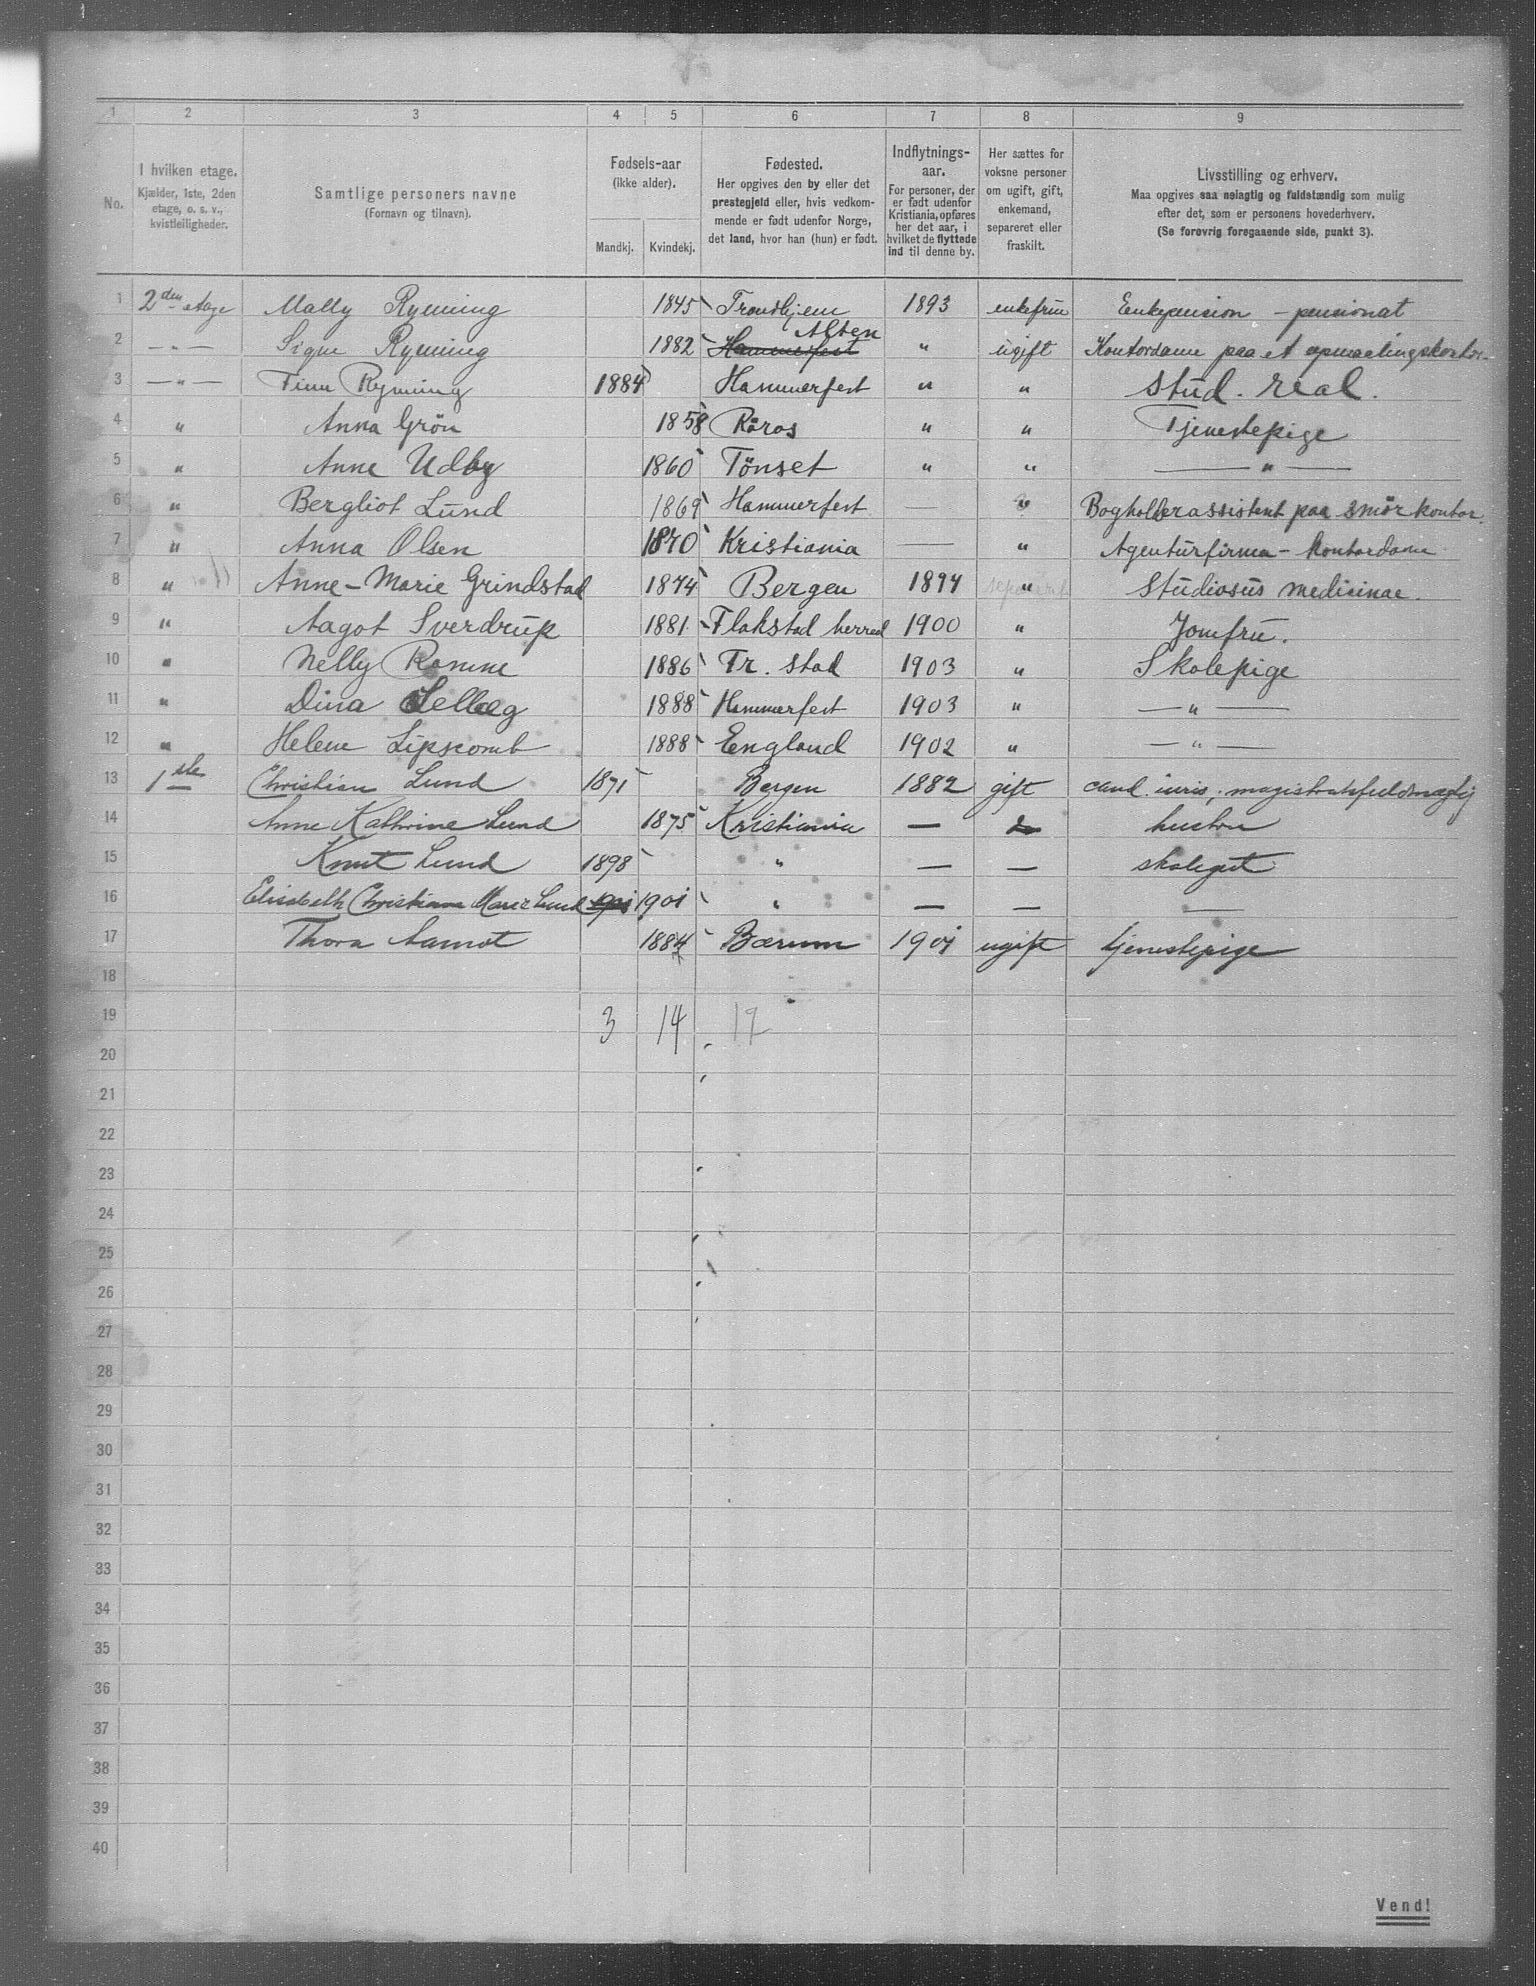 1 2 3 4 5 6 7 8 9
No.
I hvilken etage.
Kjælder, 1ste, 2den
etage, o. s. v.,
kvistleiligheder.
Samtlige personers navne
(Fornavn og tilnavn).
Fødsels-aar
(ikke alder).
Mandkj. Kvindekj.
Fødested.
Her opgives den by eller det
prestegjeld eller, hvis vedkom-
mende er født udenfor Norge,
det land, hvor han (hun) er født.
Indflytnings-
aar.
For personer, der
er født udenfor
Kristiania, opføres
her det aar, i
hvilket de flyttede
ind til denne by.
Her sættes for
voksne personer
om ugift, gift,
enkemand,
separeret eller
fraskilt.
Livsstilling og erhverv.
Maa opgives saa nøiagtig og fuldstændig som mulig
efter det, som er personens hovederhverv.
(Se forøvrig foregaaende side, punkt 3).
1 2den etage Mally Ryming 1845 Trondhjem 1893 enkefrue Enkepension - pensionat
2 — " — Signe Ryming 1882 Hammerfest Alten " ugift Kontordame paa et opmaalingskontor
3 — " — Finn Ryming 1884 Hammerfest " " stud. real.
4 " Anna Grön 1858 Röros " " Tjenestepige
5 " Anne Udby 1860 Tönset " " — " —
6 " Bergliot Lund 1869 Hammerfest — " Bogholderassistent paa smör kontor.
7 " Anna Olsen 1870 Kristiania — " Agenturfirma - kontordame
8 " Anne-Marie Grindstad 1874 Bergen 1894 " Studiosus medicinae.
9 " Aagot Sverdrup 1881 Flakstad herred 1900 " Jomfru.
10 " Nelly Romne 1886 Fr. stad 1903 " Skolepige
11 " Dina Selleg 1888 Hammerfest 1903 " — " —
12 " Helene Lipscomb 1888 England 1902 " — " —
13 1ste Christian Lund 1871 Bergen 1882 gift cand. iuris, magistratsfuldmægtig
14 Anne Kathrine Lund 1875 Kristiania — hustru
15 Knut Lund 1898 " — — skolegut
16 Elisabeth Christiane Marie Lund 1901 1901 " — — —
17 Thora Aamot 1884 Bærum 1901 ugift tjenestepige
18
19 3 14 17
20
21
22
23
24
25
26
27
28
29
30
31
32
33
34
35
36
37
38
39
40
Vend!